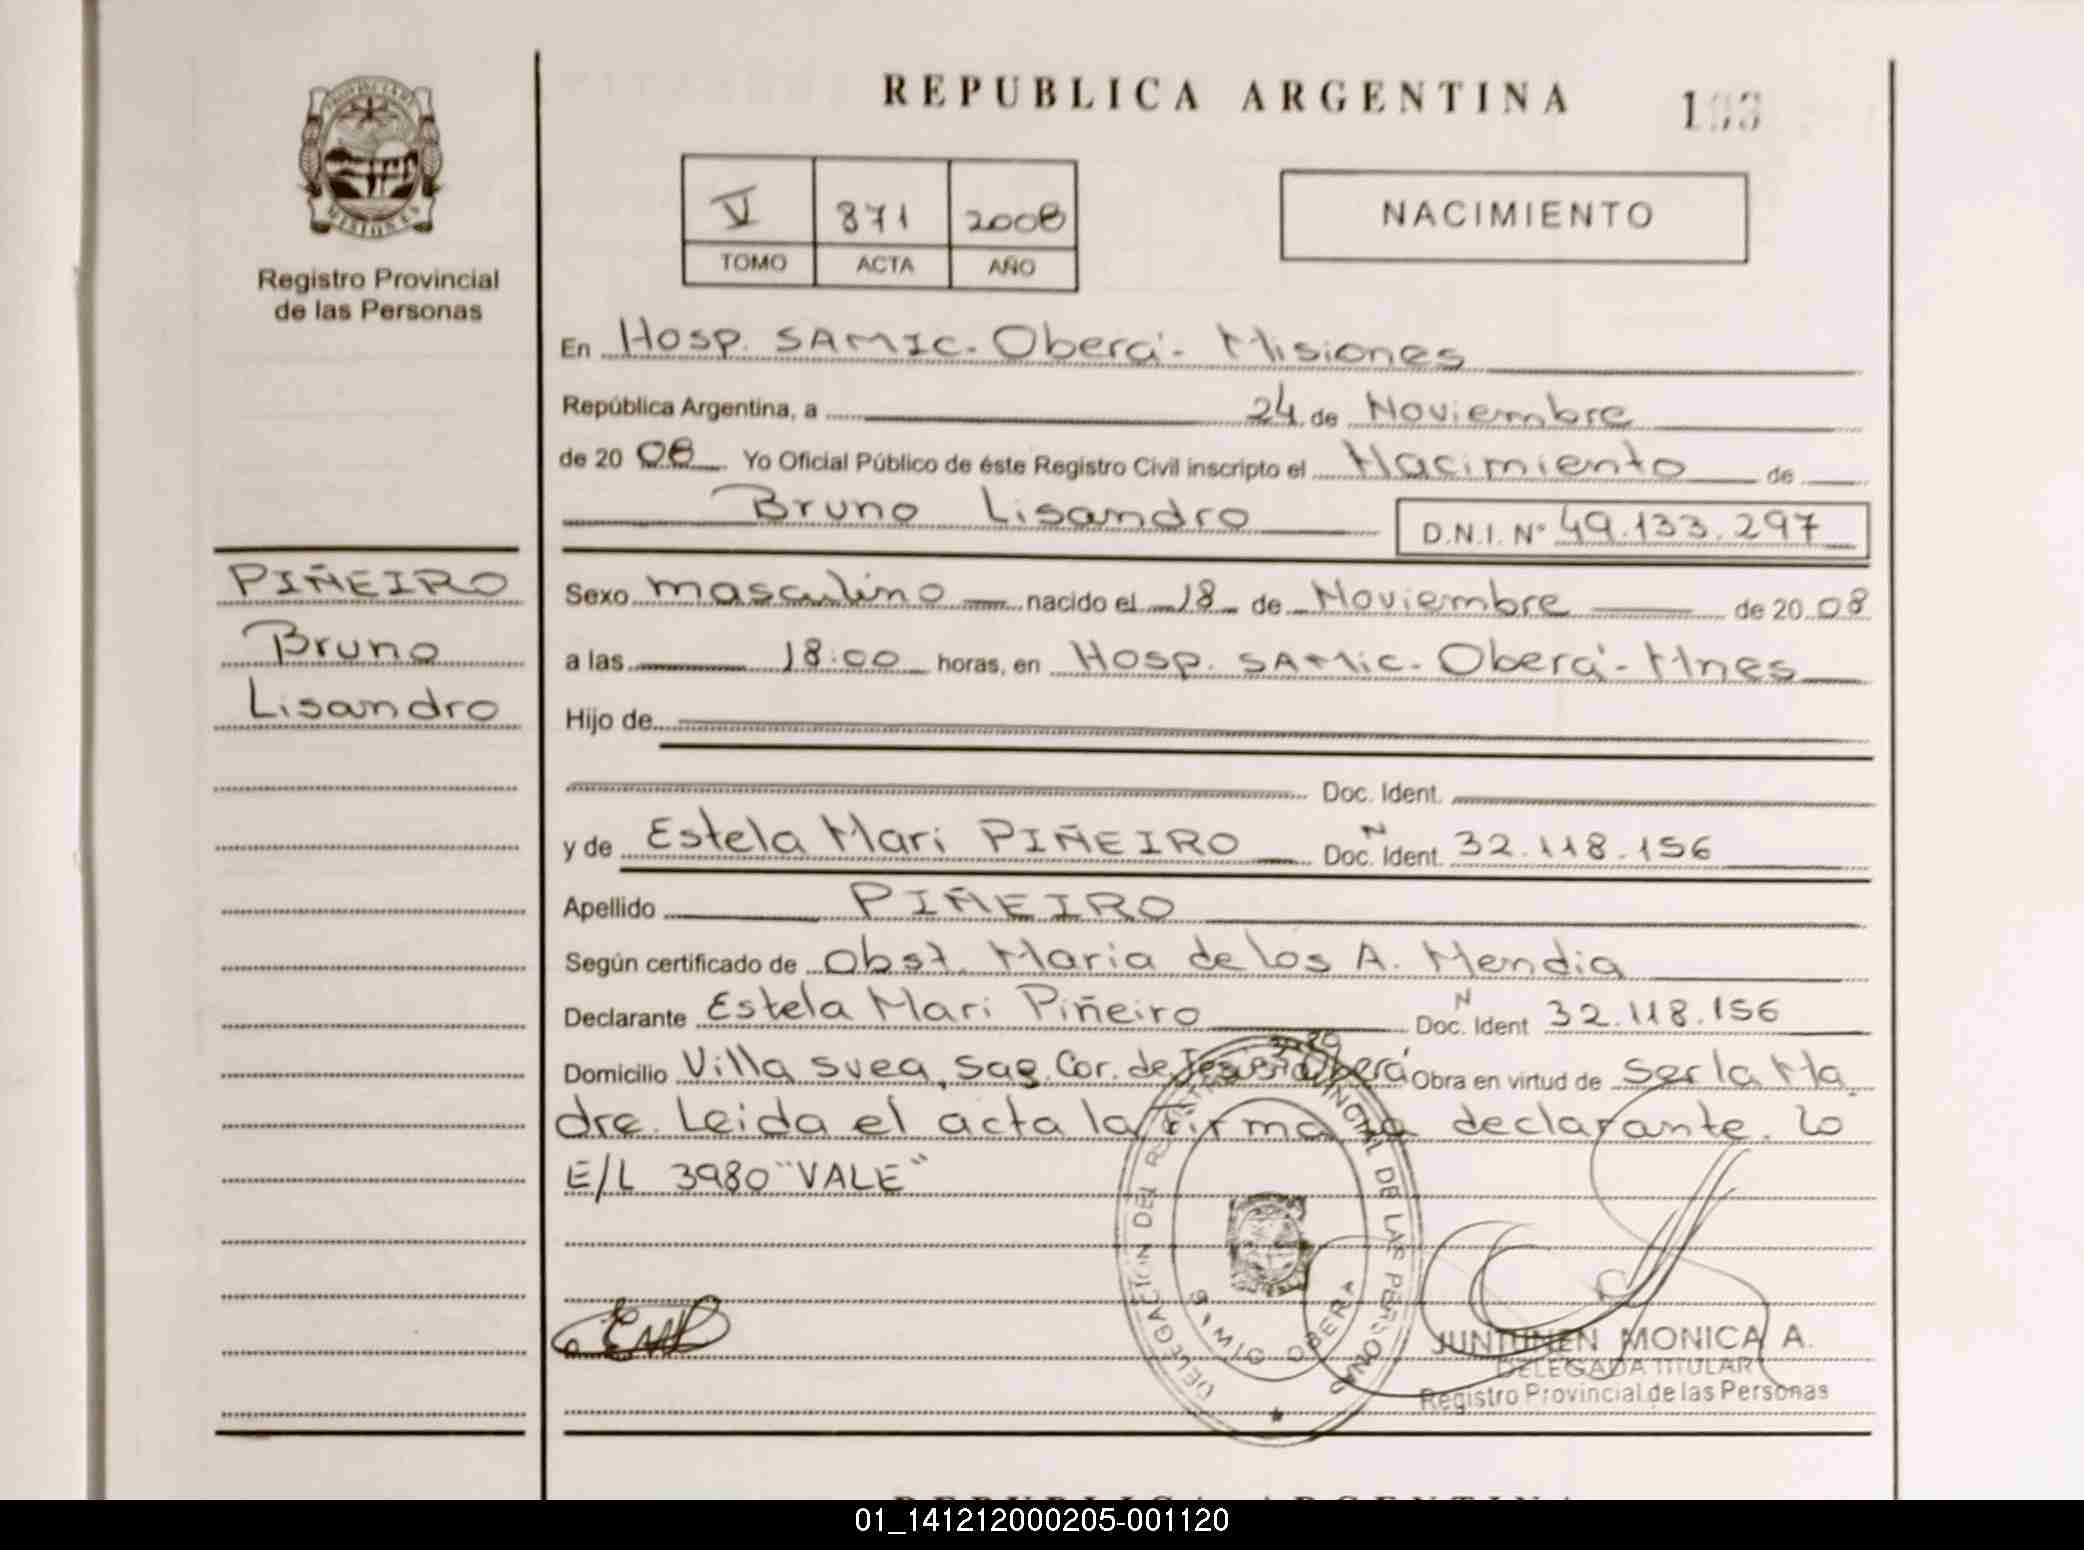 REPUBLICA ARGENTINA
PROVINCIA DE
MISIONES
Registro Provincial
de las Personas
V 871 2008
TOMO ACTA AÑO
NACIMIENTO
En Hosp. SAMIC. Oberá - Misiones
República Argentina, a 24 de Noviembre
de 20 08 Yo Oficial Público de éste Registro Civil inscripto el Nacimiento de
Bruno Lisandro D.N.I. Nº 49.133.297
PIÑEIRO
Bruno
Lisandro
Sexo masculino nacido el 18 de Noviembre de 20 08
a las 18:00 horas, en Hosp. SAMic. Oberá - Mnes
Hijo de
Doc. Ident.
y de Estela Mari PIÑEIRO N Doc. Ident. 32.118.156
Apellido PIÑEIRO
Según certificado de Obst. Maria de los A. Mendia
Declarante Estela Mari Piñeiro N Doc. Ident 32.118.156
Domicilio Villa svea, Sag. Cor. de Jesús Oberá Obra en virtud de ser la Ma
dre. Leida el acta la firma la declarante. Lo
E/L 3980 "VALE"
DELEGACIÓN DEL REGISTRO PROVINCIAL DE LAS PERSONAS
OBERA
JUNTUNEN MONICA A.
DELEGADA TITULAR
Registro Provincial de las Personas
REPUBLICA ARGENTINA
01_141212000205-001120